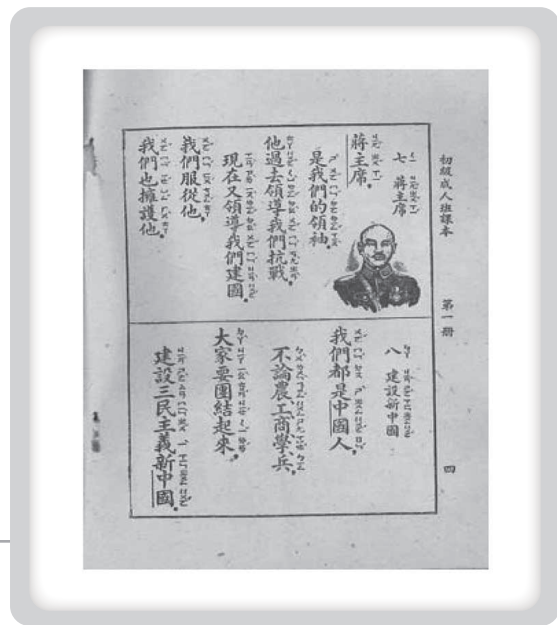 初級成人班課本
第一册
四
七 蔣主席
蔣主席，
是我們的領袖。
他過去領導我們抗戰，
現在又領導我們建國。
我們服從他，
我們也擁護他。
八 建設新中國
我們都是中國人，
不論農工商學兵，
大家要團結起來，
建設三民主義新中國。